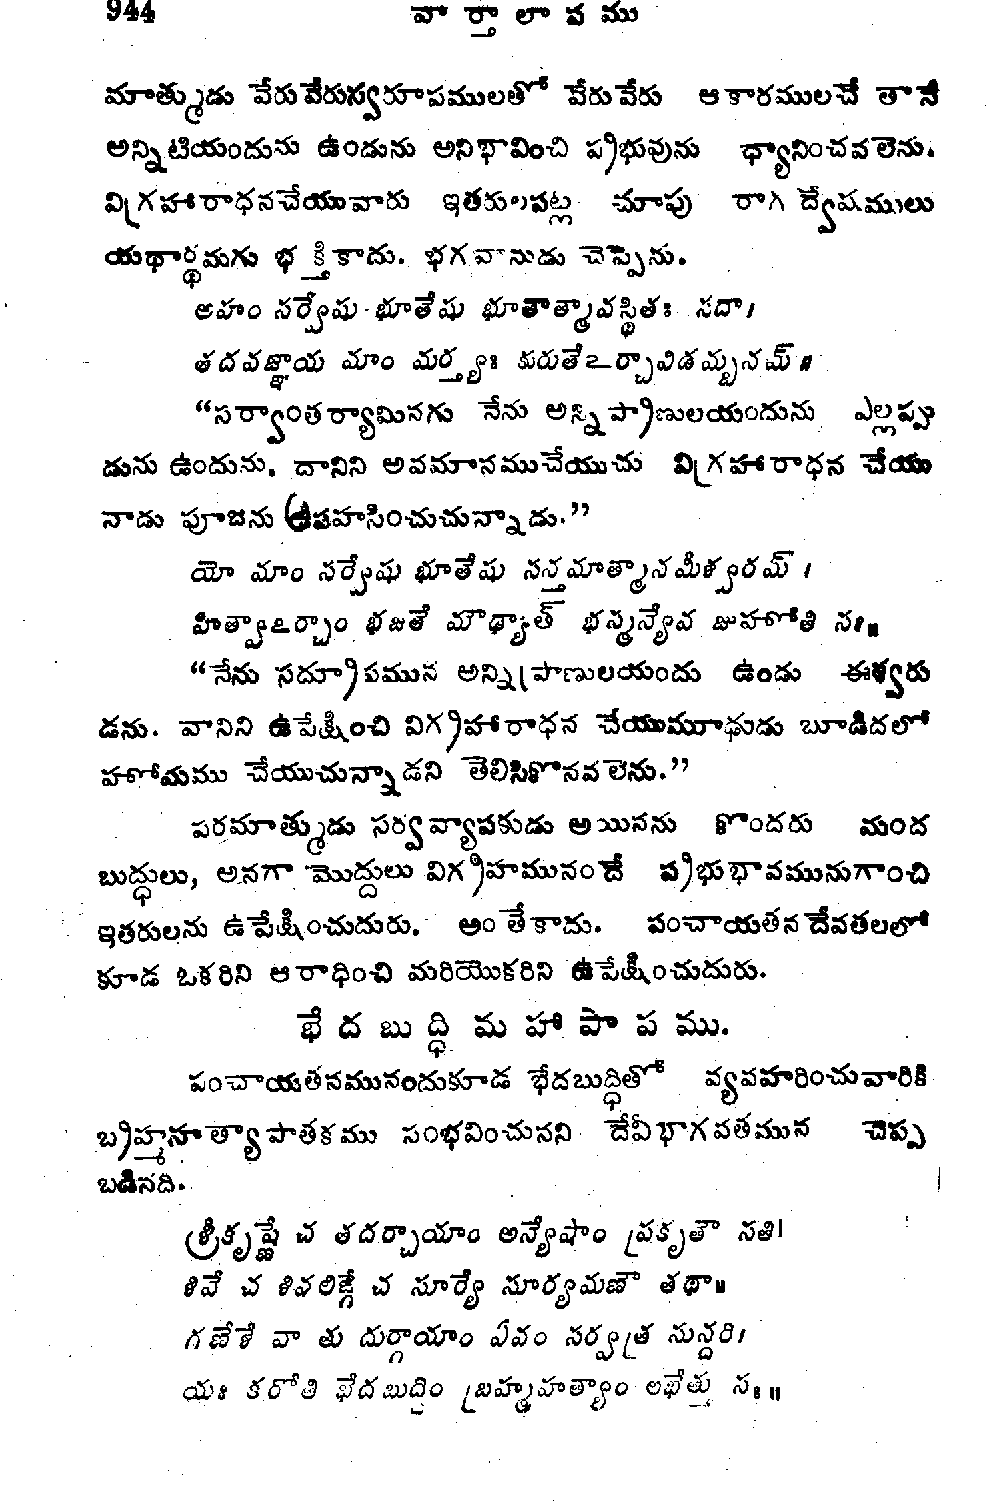 944 వార్తాలాపము
మాత్ముడు వేరువేరుస్వరూపములతో వేరువేరు ఆకారములచే తానే
అన్నిటియందును ఉండును అనిభావించి ప్రభువును ధ్యానించవలెను.
విగ్రహారాధనచేయువారు ఇతరులపట్ల చూపు రాగద్వేషములు
యథార్థమగు భక్తికాదు. భగవానుడు చెప్పెను.
అహం సర్వేషు భూతేషు భూతాత్మావస్థితః సదా।
తదవజ్ఞాయ మాం మర్త్యః కురుతేఽర్చావిడమ్బనమ్॥
“సర్వాంతర్యామినగు నేను అన్నిప్రాణులయందును ఎల్లప్పు
డును ఉందును. దానిని అవమానముచేయుచు విగ్రహారాధన చేయు
నాడు పూజను ఉపహసించుచున్నాడు.”
యో మాం సర్వేషు భూతేషు సన్తమాత్మానమీశ్వరమ్ ।
హిత్వాఽర్చాం భజతే మౌఢ్యాత్ భస్మన్యేవ జుహోతి సః॥
“నేను సద్రూపమున అన్నిప్రాణులయందు ఉండు ఈశ్వరు
డను. వానిని ఉపేక్షించి విగ్రహారాధన చేయుమూఢుడు బూడిదలో
హోమము చేయుచున్నాడని తెలిసికొనవలెను.”
పరమాత్ముడు సర్వవ్యాపకుడు అయినను కొందరు మంద
బుద్ధులు, అనగా మొద్దులు విగ్రహమునందే ప్రభుభావమునుగాంచి
ఇతరులను ఉపేక్షించుదురు. అంతేకాదు. పంచాయతన దేవతలలో
కూడ ఒకరిని ఆరాధించి మరియొకరిని ఉపేక్షించుదురు.
భేదబుద్ధి మహాపాపము.
పంచాయతనమునందుకూడ భేదబుద్ధితో వ్యవహరించువారికి
బ్రహ్మహత్యాపాతకము సంభవించునని దేవీభాగవతమున చెప్ప
బడినది.
శ్రీకృష్ణే చ తదర్చాయాం అన్యేషాం ప్రకృతౌ సతి।
శివే చ శివలిఙ్గే చ సూర్యే సూర్యమణౌ తథా॥
గణేశే వా తు దుర్గాయాం ఏవం సర్వత్ర సున్దరి।
యః కరోతి భేదబుద్ధిం బ్రహ్మహత్యాం లభేత్తు సః॥